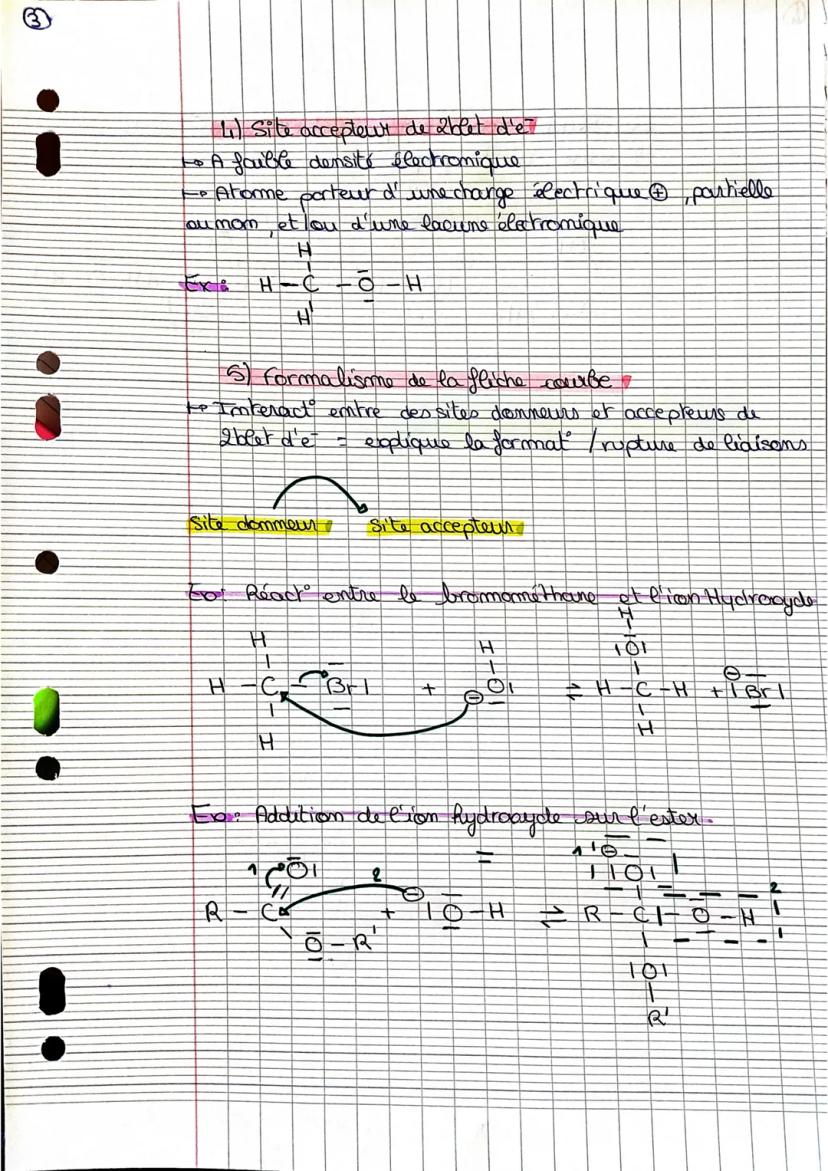 3
4) Site accepteur de 2blet d'e⁻
↦ A faible densité électronique
↦ Atome porteur d'une charge électrique ⊕, partielle
ou non, et/ou d'une lacune électronique
H
Ex : H – C – O – H
H
5) Formalisme de la flèche courbe
↦ Interact° entre des sites donneurs et accepteurs de
2blet d'e⁻ = explique la format° / rupture de liaisons
Site donneur Site accepteur
Ex: Réact° entre le bromométhane et l'ion Hydroxyde
H H H
O
H – C – Br + ⊖ O ⇌ H – C – H + ⊖ Br
H H
Ex : Addition de l'ion hydroxyde sur l'ester.
1 O 2 1 ⊖ O 2
R – C + ⊖ O – H ⇌ R – C – O – H
O – R' O
R'